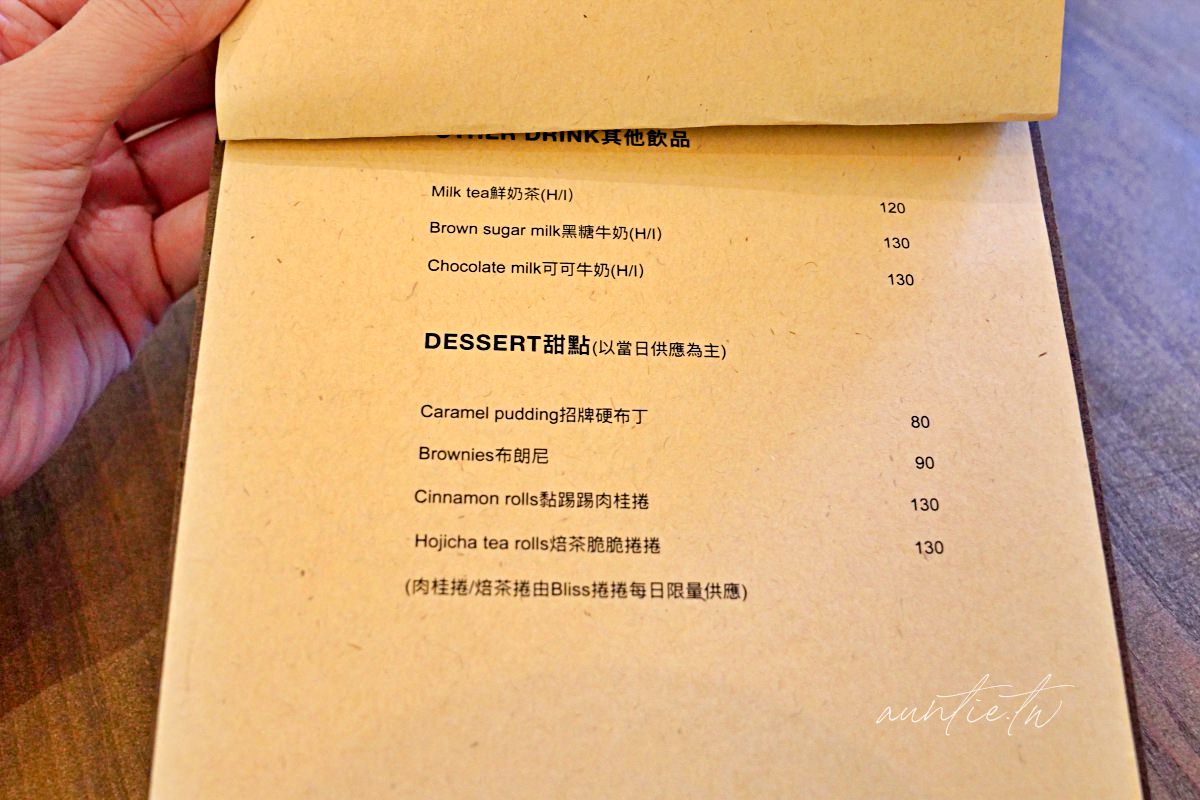 OTHER DRINK其他飲品
Milk tea鮮奶茶(H/I) 120
Brown sugar milk黑糖牛奶(H/I) 130
Chocolate milk可可牛奶(H/I) 130
DESSERT甜點(以當日供應為主)
Caramel pudding招牌硬布丁 80
Brownies布朗尼 90
Cinnamon rolls黏踢踢肉桂捲 130
Hojicha tea rolls焙茶脆脆捲捲 130
(肉桂捲/焙茶捲由Bliss捲捲每日限量供應)
auntie.tw